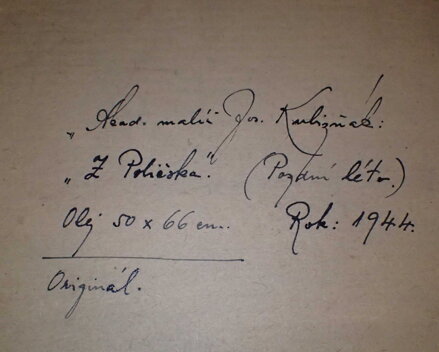 „Akad. malíř Jos. Kubizňák:
„Z Poličska." (Pozdní léto.)
Olej 50 x 66 cm. Rok: 1944.
Originál.